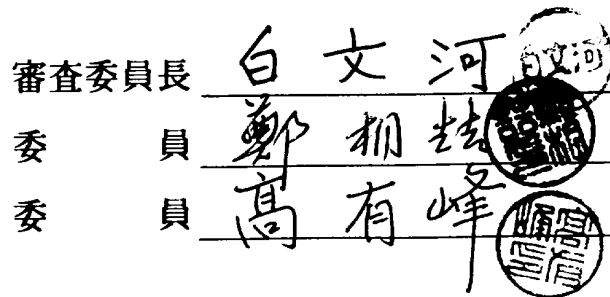 審査委員長 白文河 白文河
委員 鄭相
委員 高有峰